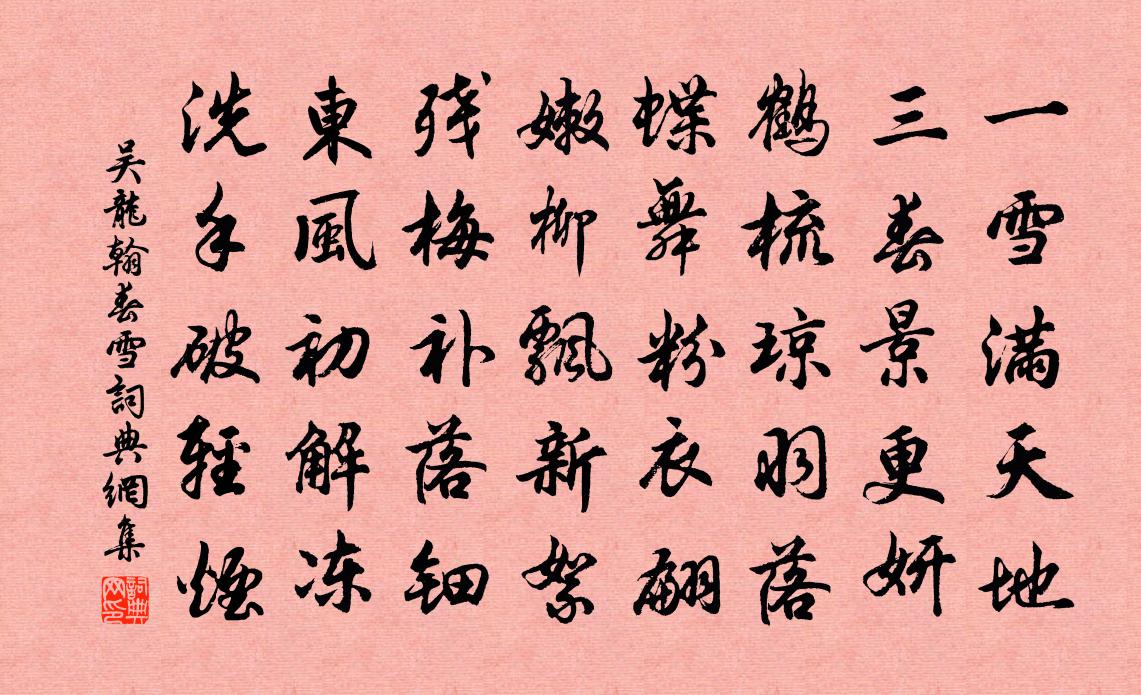 一雪满天地
三春景更妍
鹤梳琼羽落
蝶舞粉衣翩
嫩柳飘新絮
残梅补落钿
東風初解冻
洗手破輕煙
吴龍翰春雪詞典網集
詞典網印